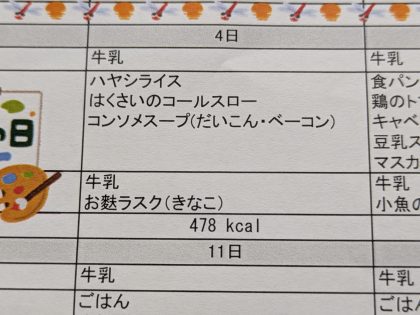 4日
牛乳
牛乳
ハヤシライス
食パン
はくさいのコールスロー
鶏のト
コンソメスープ(だいこん・ベーコン)
キャベ
豆乳ス
の日
マスカ
牛乳
牛乳
お麩ラスク(きなこ)
小魚の
478 kcal
11日
牛乳
牛乳
ごはん
ごはん